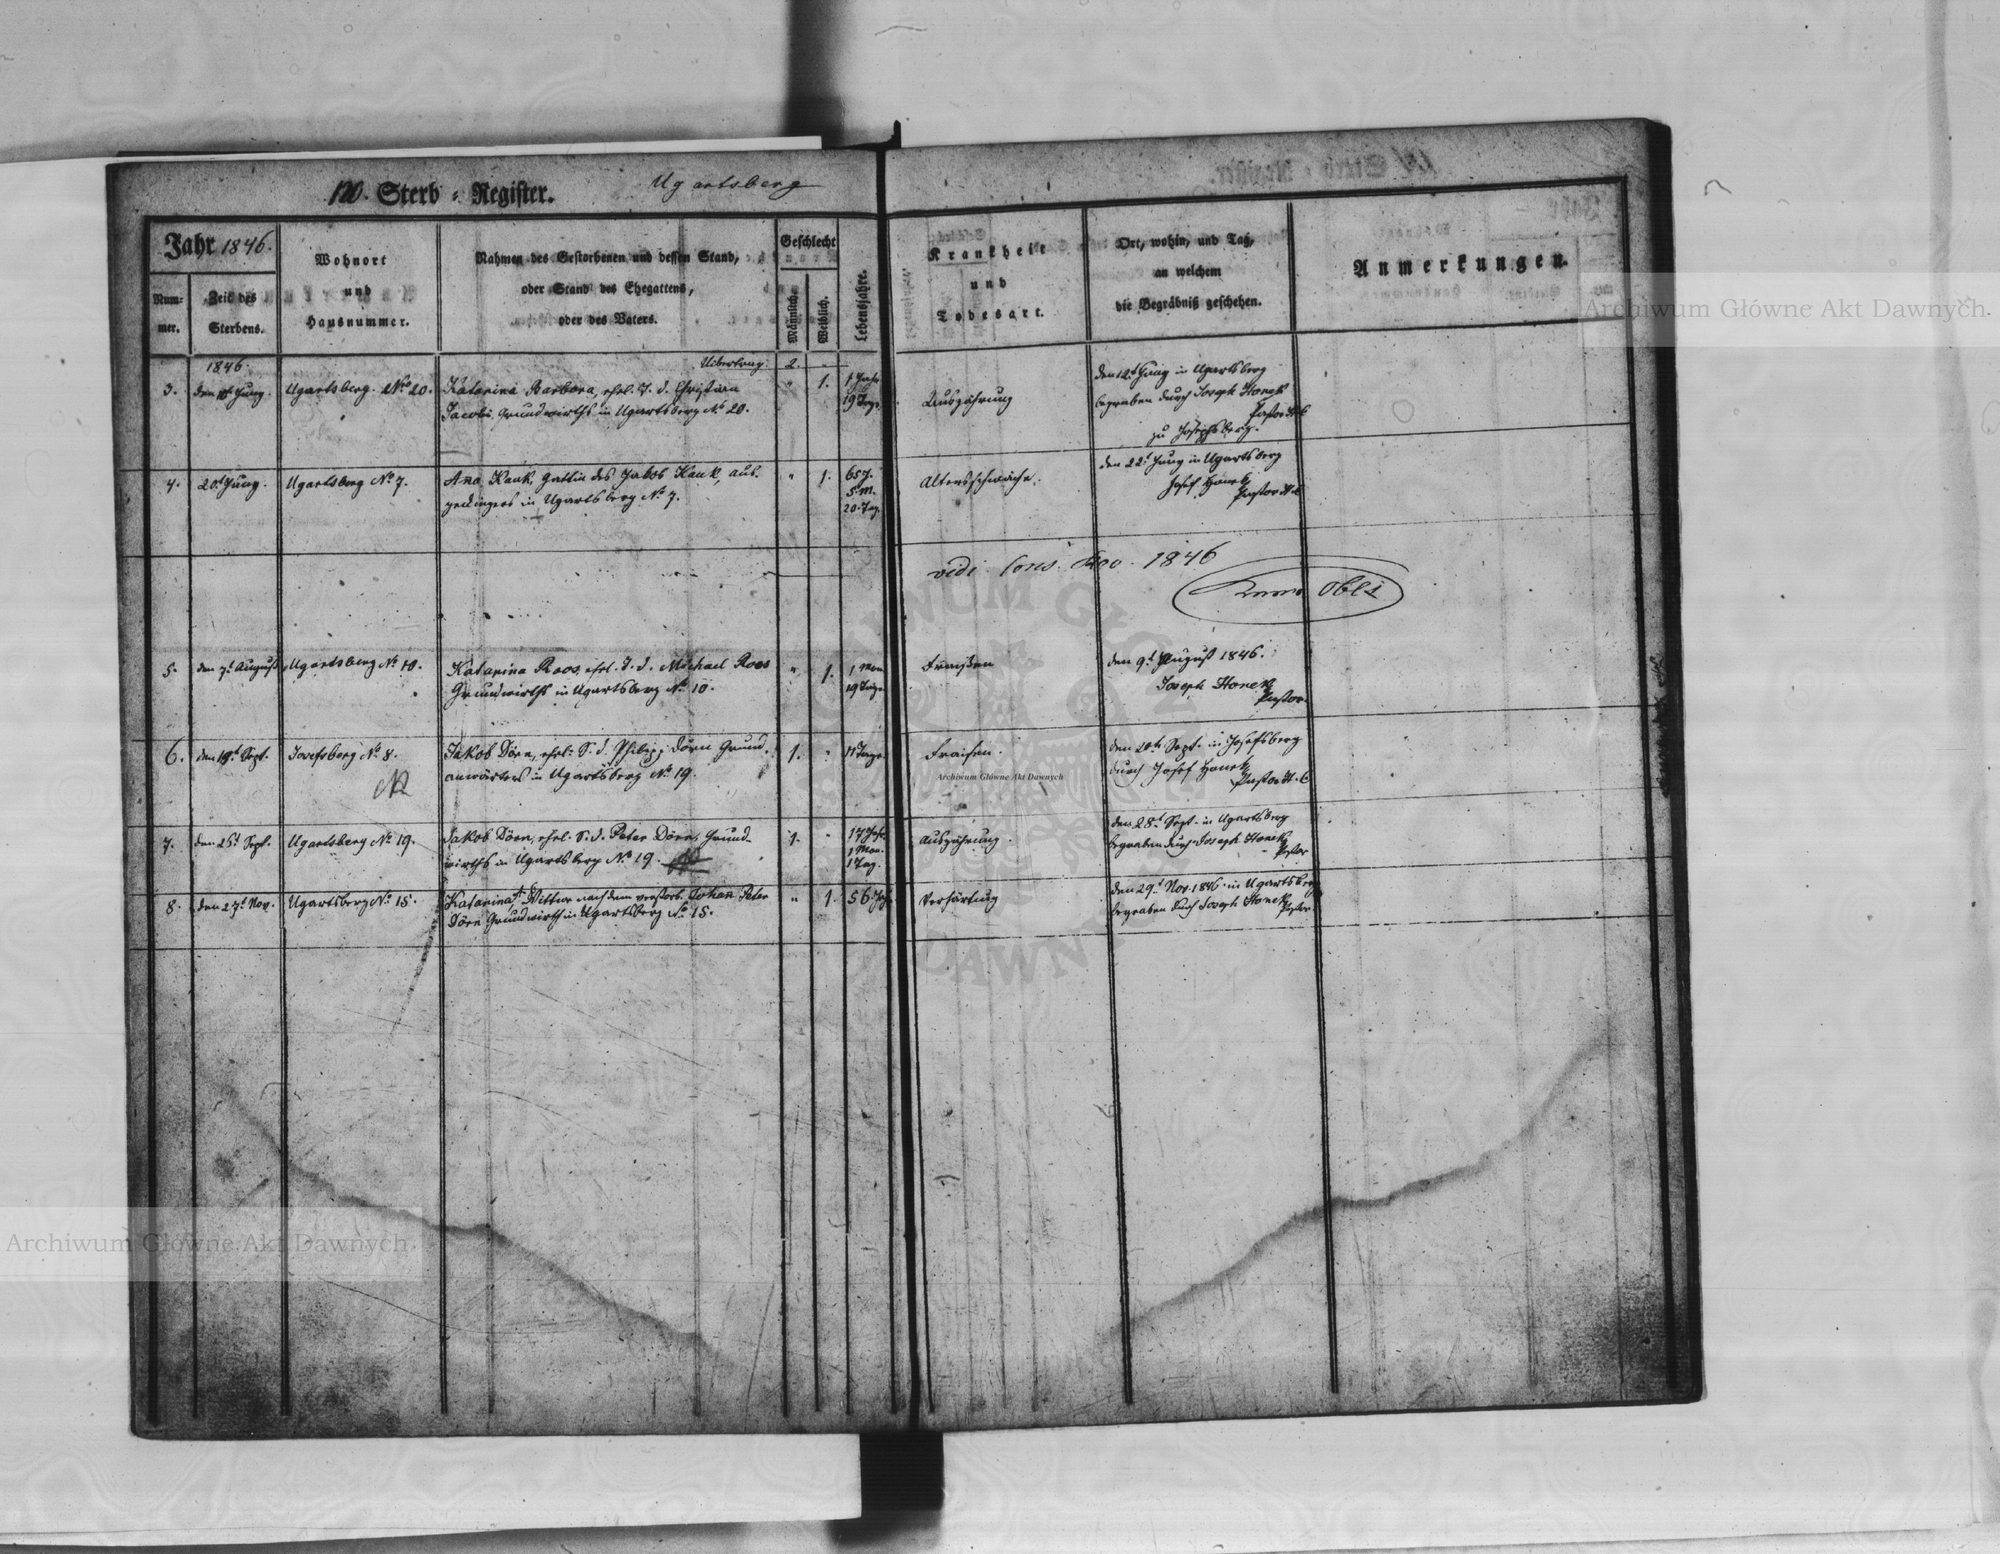 120. Sterb = Register. Ugartsberg
Jahr 1846.
Num-
mer.
Zeit des
Sterbens.
Wohnort
und
Hausnummer.
Nahmen des Gestorbenen und dessen Stand,
oder Stand des Ehegatten,
oder des Vaters.
Geschlecht
Männlich.
Weiblich.
Lebensjahre.
Krankheit
und
Todesart.
Ort, wohin, und Tag,
an welchem
die Begräbniß geschehen.
Anmerkungen.
1846. Uibertrag 2.
3. den Juny. Ugartsberg. No 20. Katarina Barbara, ehel. T. d. Christian
Jacobi Grundwirths in Ugartsberg No 20.
" 1. 1 Jahr
19 Tage
Auszährung
den 12t Juny in Ugartsberg
begraben durch Joseph Honek
Pastor H.C
zu Josephsberg.
4. 20t Juny. Ugartsberg No 7. Ana Kauk, Gattin des Jakob Kauk, aus-
gedingers in Ugartsberg No 7.
" 1. 65 J.
5 M.
20. Tag.
Altersschwäche.
den 22t Juny in Ugartsberg
Josef Honek
Pastor H.C
vidi 1846
5. den 7t August Ugartsberg No 10. Katarina Roos, ehel. T. d. Michael Roos
Grundwirths in Ugartsberg No 10.
" 1. 1 Mon
19 Tage
Fraißen
den 9t August 1846.
Joseph Honek
Pastor.
6. den 19t Sept. Josefsberg No 8. Jakob Dörn, ehel. S. d. Philipp Dörn Grund-
anwärters in Ugartsberg No 19.
1. " 11 Tage
Fraisen.
den 20te Sept. in Josefsberg
durch Josef Honek
Pastor H.C
7. den 26t Sept. Ugartsberg No 19. Jakob Dörn, ehel. S. d. Peter Dörn, Grund-
wirths in Ugartsberg No 19.
1. " 17 Jahr
1 Mon.
1 Tag.
Auszährung.
den 28t Sept. in Ugartsberg
begraben durch Joseph Honek
Pastor
8. den 27t Nov. Ugartsberg No 15. Katarina Wittwe nach dem verstorb. Johan Peter
Dörn Grundwirth in Ugartsberg No 15.
" 1. 56 J.
Verhärtung
den 29t Nov. 1846. in Ugartsberg
begraben durch Joseph Honek
Pastor.
Archiwum Główne Akt Dawnych
Archiwum Główne Akt Dawnych
Archiwum Główne Akt Dawnych